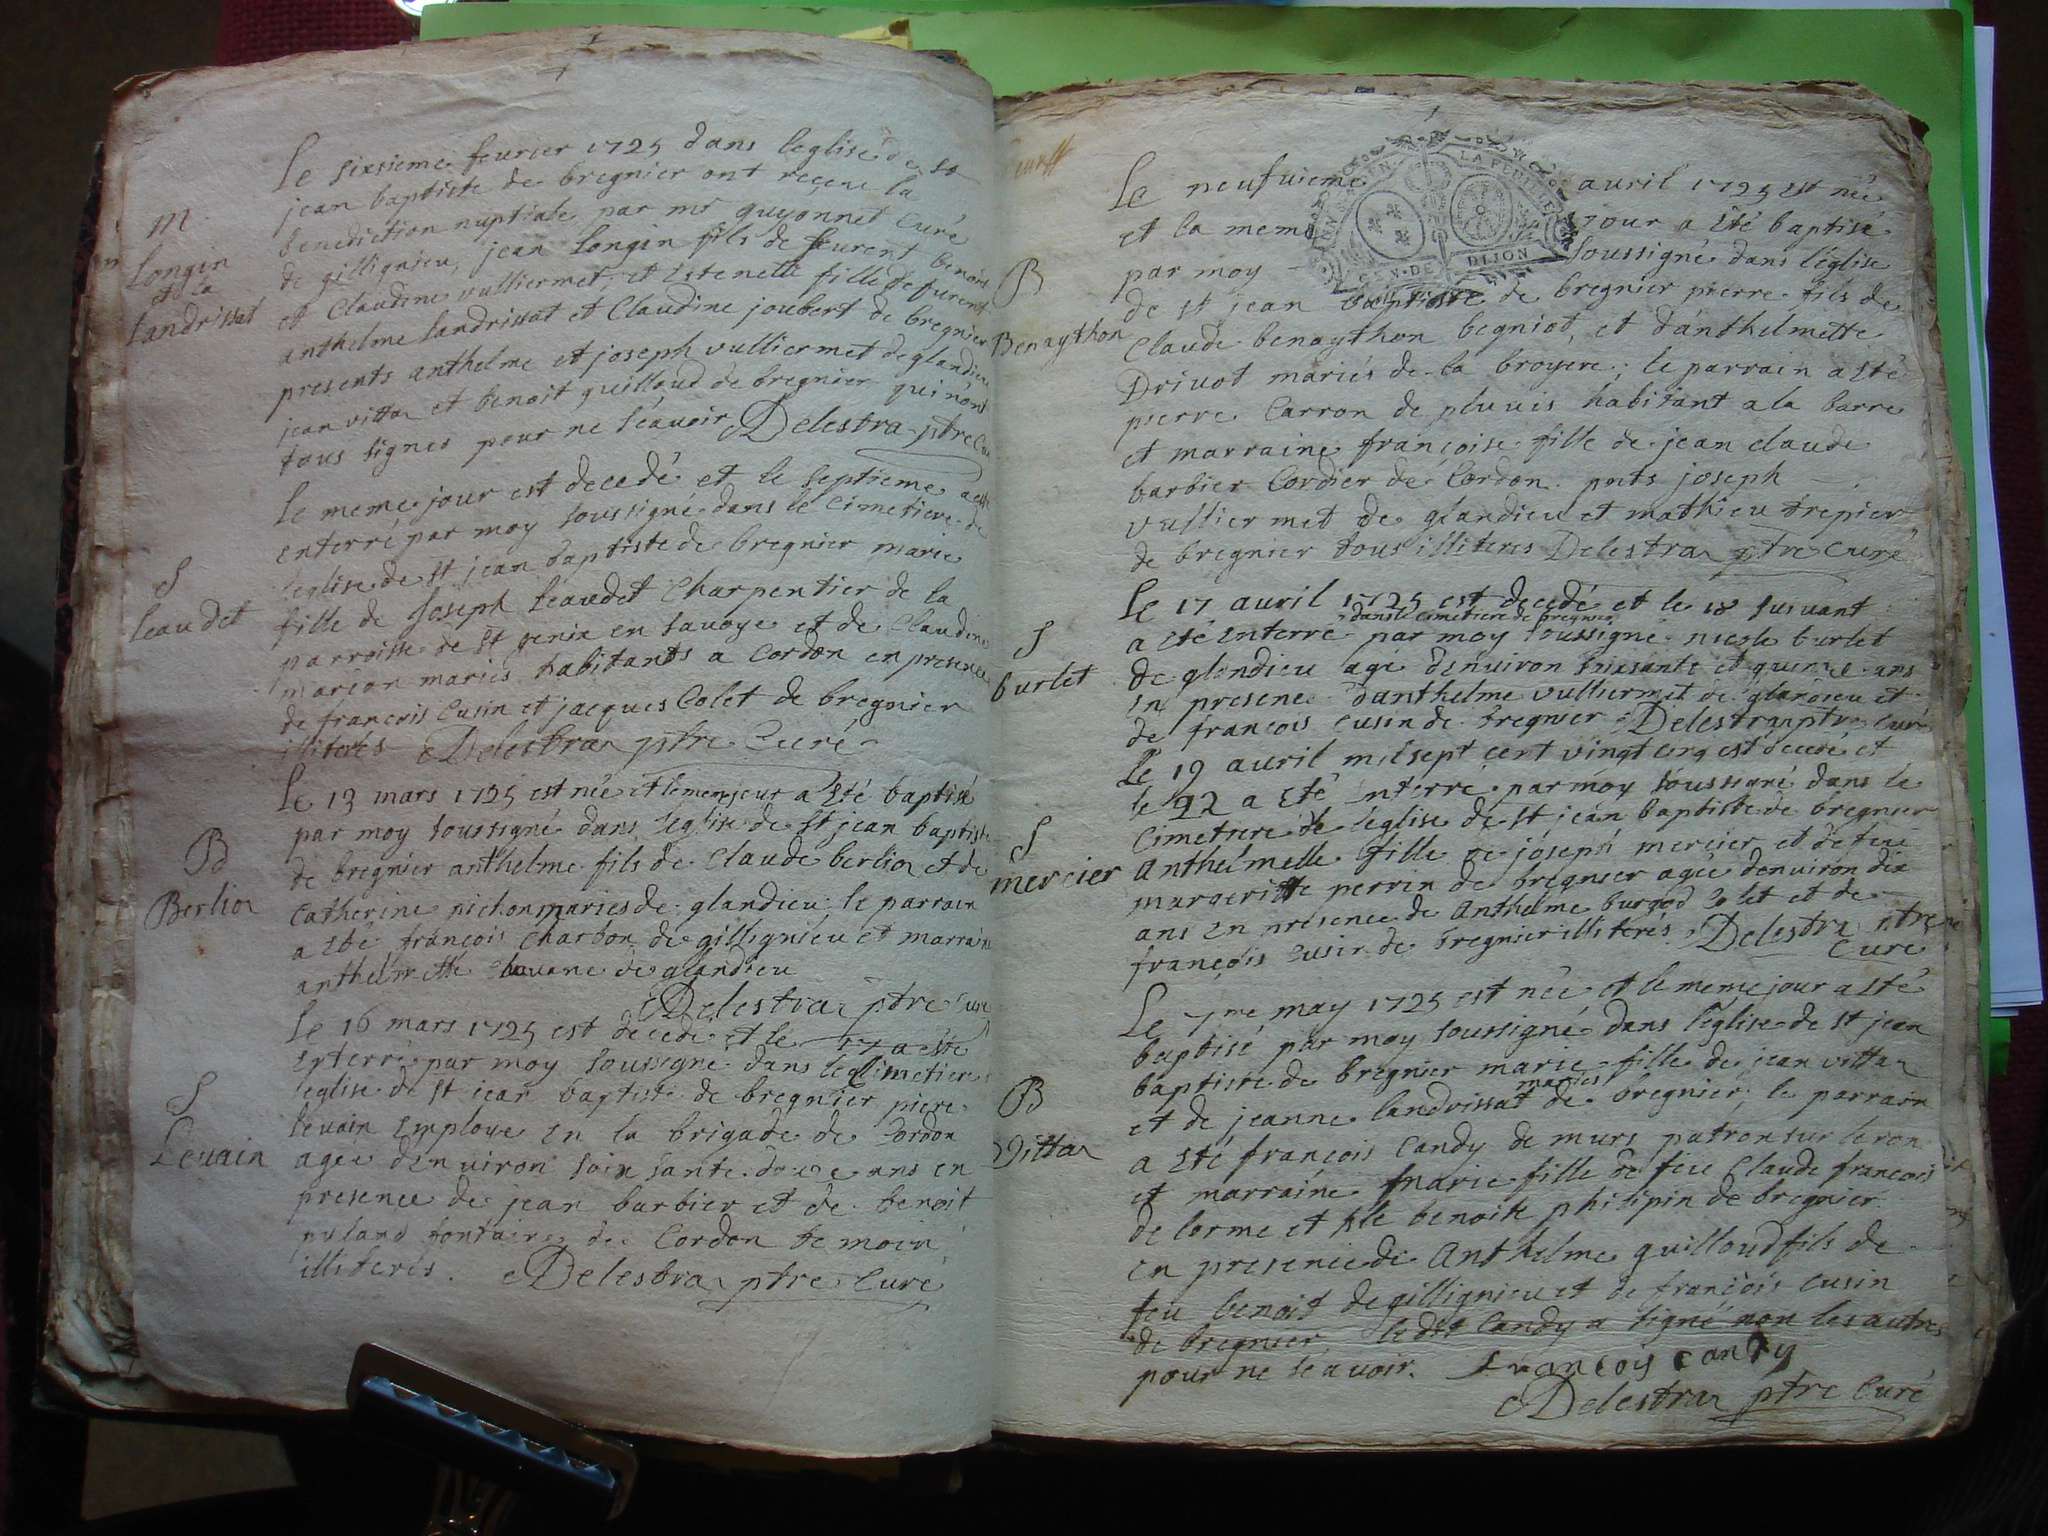 Le sixsieme feurier 1725 dans leglise de st
jean baptiste de bregnier ont receue la
benediction nuptiale par mr guyonnet Curé
de gillignieu, jean Longin fils de benoit
et Claudine vulliermet, et Estenette fille de
anthelme landrissat et Claudine joubert de bregnier
presents anthelme et joseph vulliermet de glandieu
jean vittoz et benoit guilloud de bregnier qui n'ont
tous signes pour ne scauoir Delestra ptre Curé
m
Longin
et la
Landrissat
Le meme jour est decedé et le septieme a esté
enterré par moy soussigné dans le Cimetiere de
leglise de st jean baptiste de bregnier marie
fille de Joseph Leaudet Charpentier de la
parroisse de st genix en sauoye et de Claudine
marion mariés habitants a Cordon en presence
de francois Cusin et jacques Colet de bregnier
illiterés Delestra ptre Curé
S
Leaudet
Le 13 mars 1725 est née et lememe jour a Eté baptisé
par moy soussigné dans leglise de st jean baptiste
de bregnier anthelme fils de Claude berlioz et de
Catherine pichon maries de glandieu le parrain
a Eté françois Charbon de gillignieu et marraine
anthelmette de glandieu
Delestra ptre Curé
B
Berlioz
Le 16 mars 1725 est decedé et le 17 a esté
Enterré par moy soussigné dans le Cimetiere
leglise de st jean baptiste de bregnier piere
Leuain Employe En la brigade de Cordon
agée d'Enuiron soixsante douze ans en
presence de jean barbier et de benoit
de Cordon temoin
illiterés. Delestra ptre Curé
S
Leuain
Le neufuieme avril 1725 est née
et la meme jour a Eté baptisé
par moy soussigné dans l'église
de st jean baptiste de bregnier pierre fils de
Claude benaython begniot, et d'anthelmette
Driuot mariés de la broyere; le parrain a Eté
pierre Carron de pluuis habitant a la barre
et marraine françoise fille de jean claude
barbier Cordier de Cordon. pnts joseph
vulliermet de glandieu et mathieu trepier
de bregnier tous illiteres Delestra ptre Curé
GEN. DE DIJON
B
Benaython
Le 17 auril 1725 est decedé et le 18 suiuant
a Eté Enterré dans le cimetiere de bregnier par moy soussigné nicole burlet
de glandieu agé d'Enuiron soixsante et quinze ans
En presence d'anthelme vulliermet de glandieu et
de françois Cusin de bregnier Delestra ptre Curé
S
burlet
Le 19 auril mil sept cent vingt cinq est decedé et
le 22 a Eté Enterré par moy soussigné dans le
Cimetiere de l'église de st jean baptiste de bregnier
Anthelmette fille de joseph mercier et de feue
margeritte perrin de bregnier agée denuiron dix
ans En presence de Anthelme burgod Colet et de
françois Cusin de bregnier illiterés Delestra ptre
Curé
S
mercier
Le 7me may 1725 est née et le meme jour a Eté
baptisé par moy soussigné dans l'église de st jean
baptiste de bregnier marie fille de jean vittoz
et de jeanne landrissat mariés de bregnier; le parrain
a Eté françois Candy de murs patron sur le ron
et marraine marie fille de feu Claude francois
de lorme et de benoite philipin de bregnier
en presence de Anthelme guilloud fils de
feu benoit de gillignieu et de françois Cusin
de bregnier ledit Candy a signé non les autres
pour ne scauoir. francois candy
Delestra ptre Curé
B
Vittoz